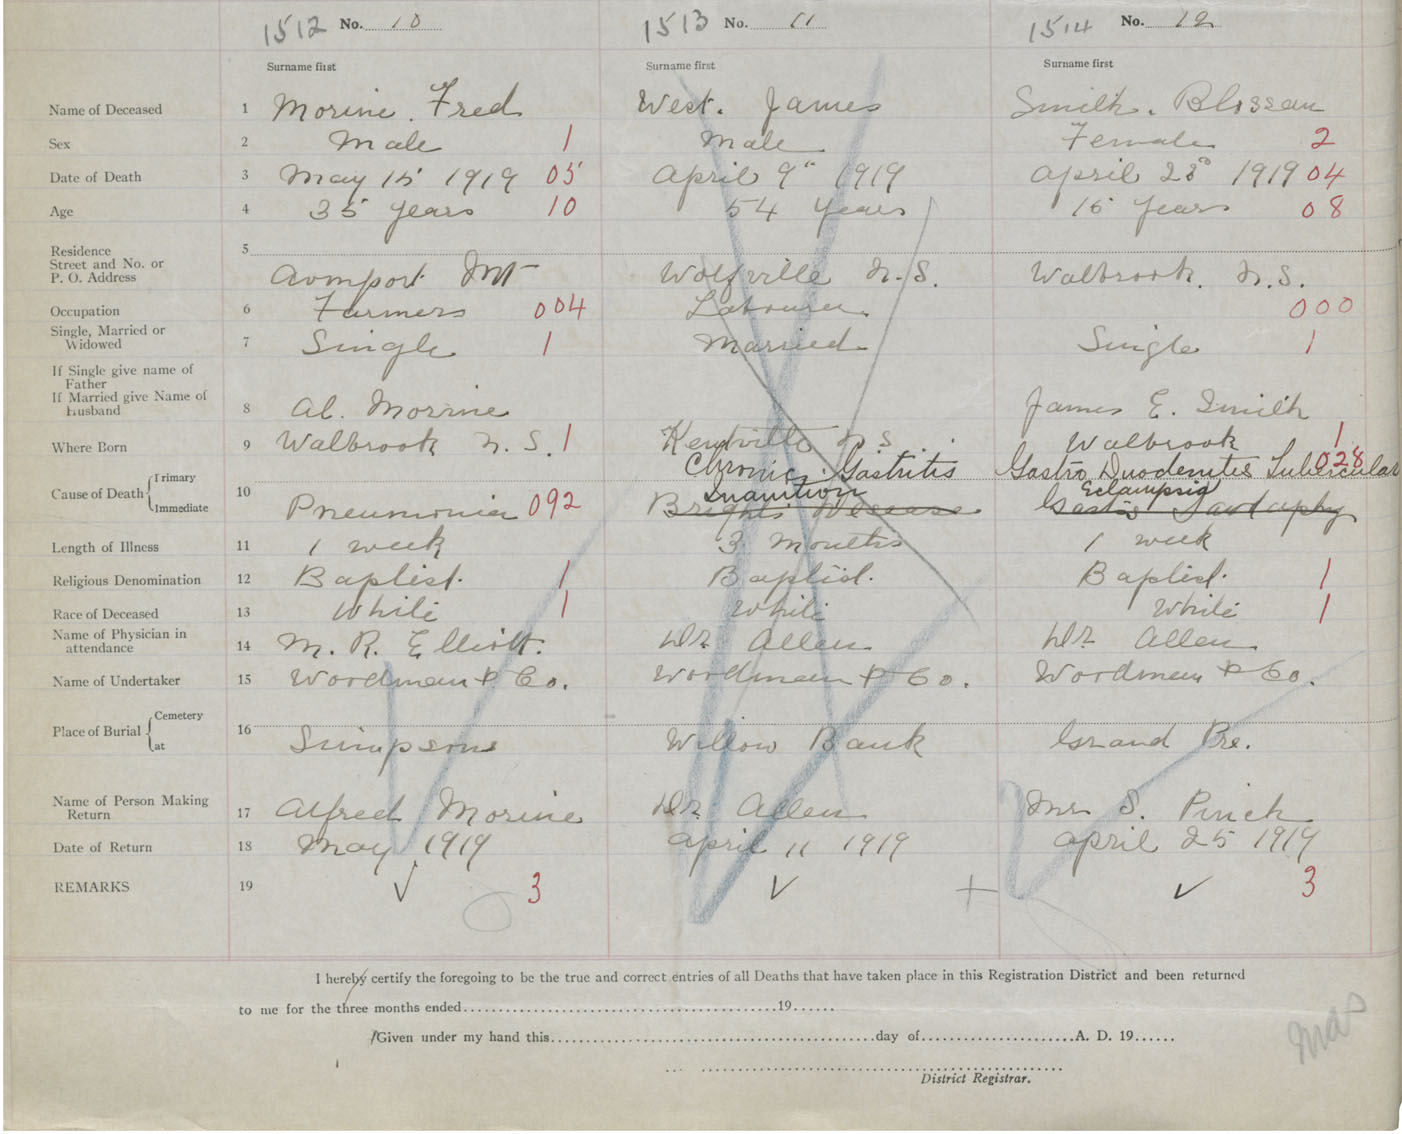 1512 No. 10 1513 No. 11 1514 No. 12
Surname first Surname first Surname first
Name of Deceased 1 Morine. Fred West. James Smith. Blossan
Sex 2 Male 1 Male Female 2
Date of Death 3 May 15 1919 05 April 9" 1919 April 23" 1919 04
Age 4 35 years 10 54 years 15 years 08
Residence 5
Street and No. or
P. O. Address Avonport Mt Wolfville N.S. Walbrook. N.S.
Occupation 6 Farmers 004 Labourer 000
Single, Married or
Widowed 7 Single 1 Married Single 1
If Single give name of
Father
If Married give Name of
Husband 8 Al. Morine James E. Smith
Where Born 9 Walbrook N.S. 1 Kentville N S. Walbrook 1
Chronic Gastritis Gastro Duodenites Tubercular 028
Cause of Death Primary 10 Inanition Eclampsia
Immediate Pneumonia 092 Brights Disease
Length of Illness 11 1 week 3 Months 1 week
Religious Denomination 12 Baptist. 1 Baptist. Baptist. 1
Race of Deceased 13 White 1 White White 1
Name of Physician in
attendance 14 M. R. Elliott. Dr. Allen Dr. Allen
Name of Undertaker 15 Wordman & Co. Wordman & Co. Wordman & Co.
Place of Burial Cemetery 16
at Simpsons Willow Bank Grand Pre.
Name of Person Making
Return 17 Alfred Morine Dr. Allen Mrs S. Pinch
Date of Return 18 May 1919 April 11 1919 April 25 1919
REMARKS 19 ✓ 3 ✓ + ✓ 3
I hereby certify the foregoing to be the true and correct entries of all Deaths that have taken place in this Registration District and been returned
to me for the three months ended 19
Given under my hand this day of A. D. 19
District Registrar.